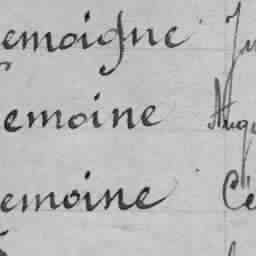 emoigne Ju
emoine Augu
emoine Cé